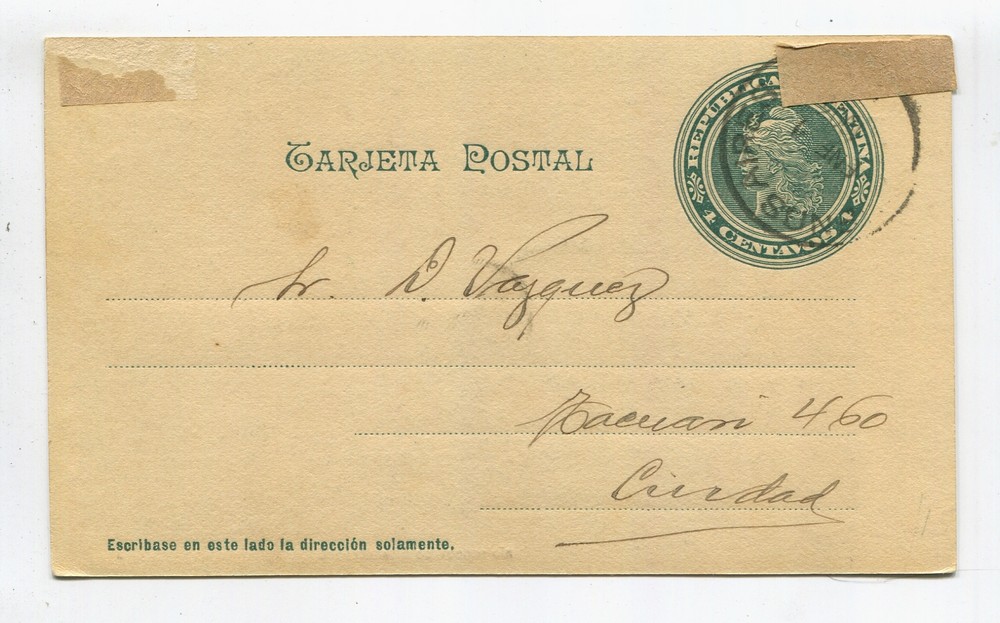 REPÚBLICA ENTINA
4 CENTAVOS 4
TARJETA POSTAL
Sr. D. Vazquez
Tacuari 460
Ciudad
Escribase en este lado la dirección solamente.